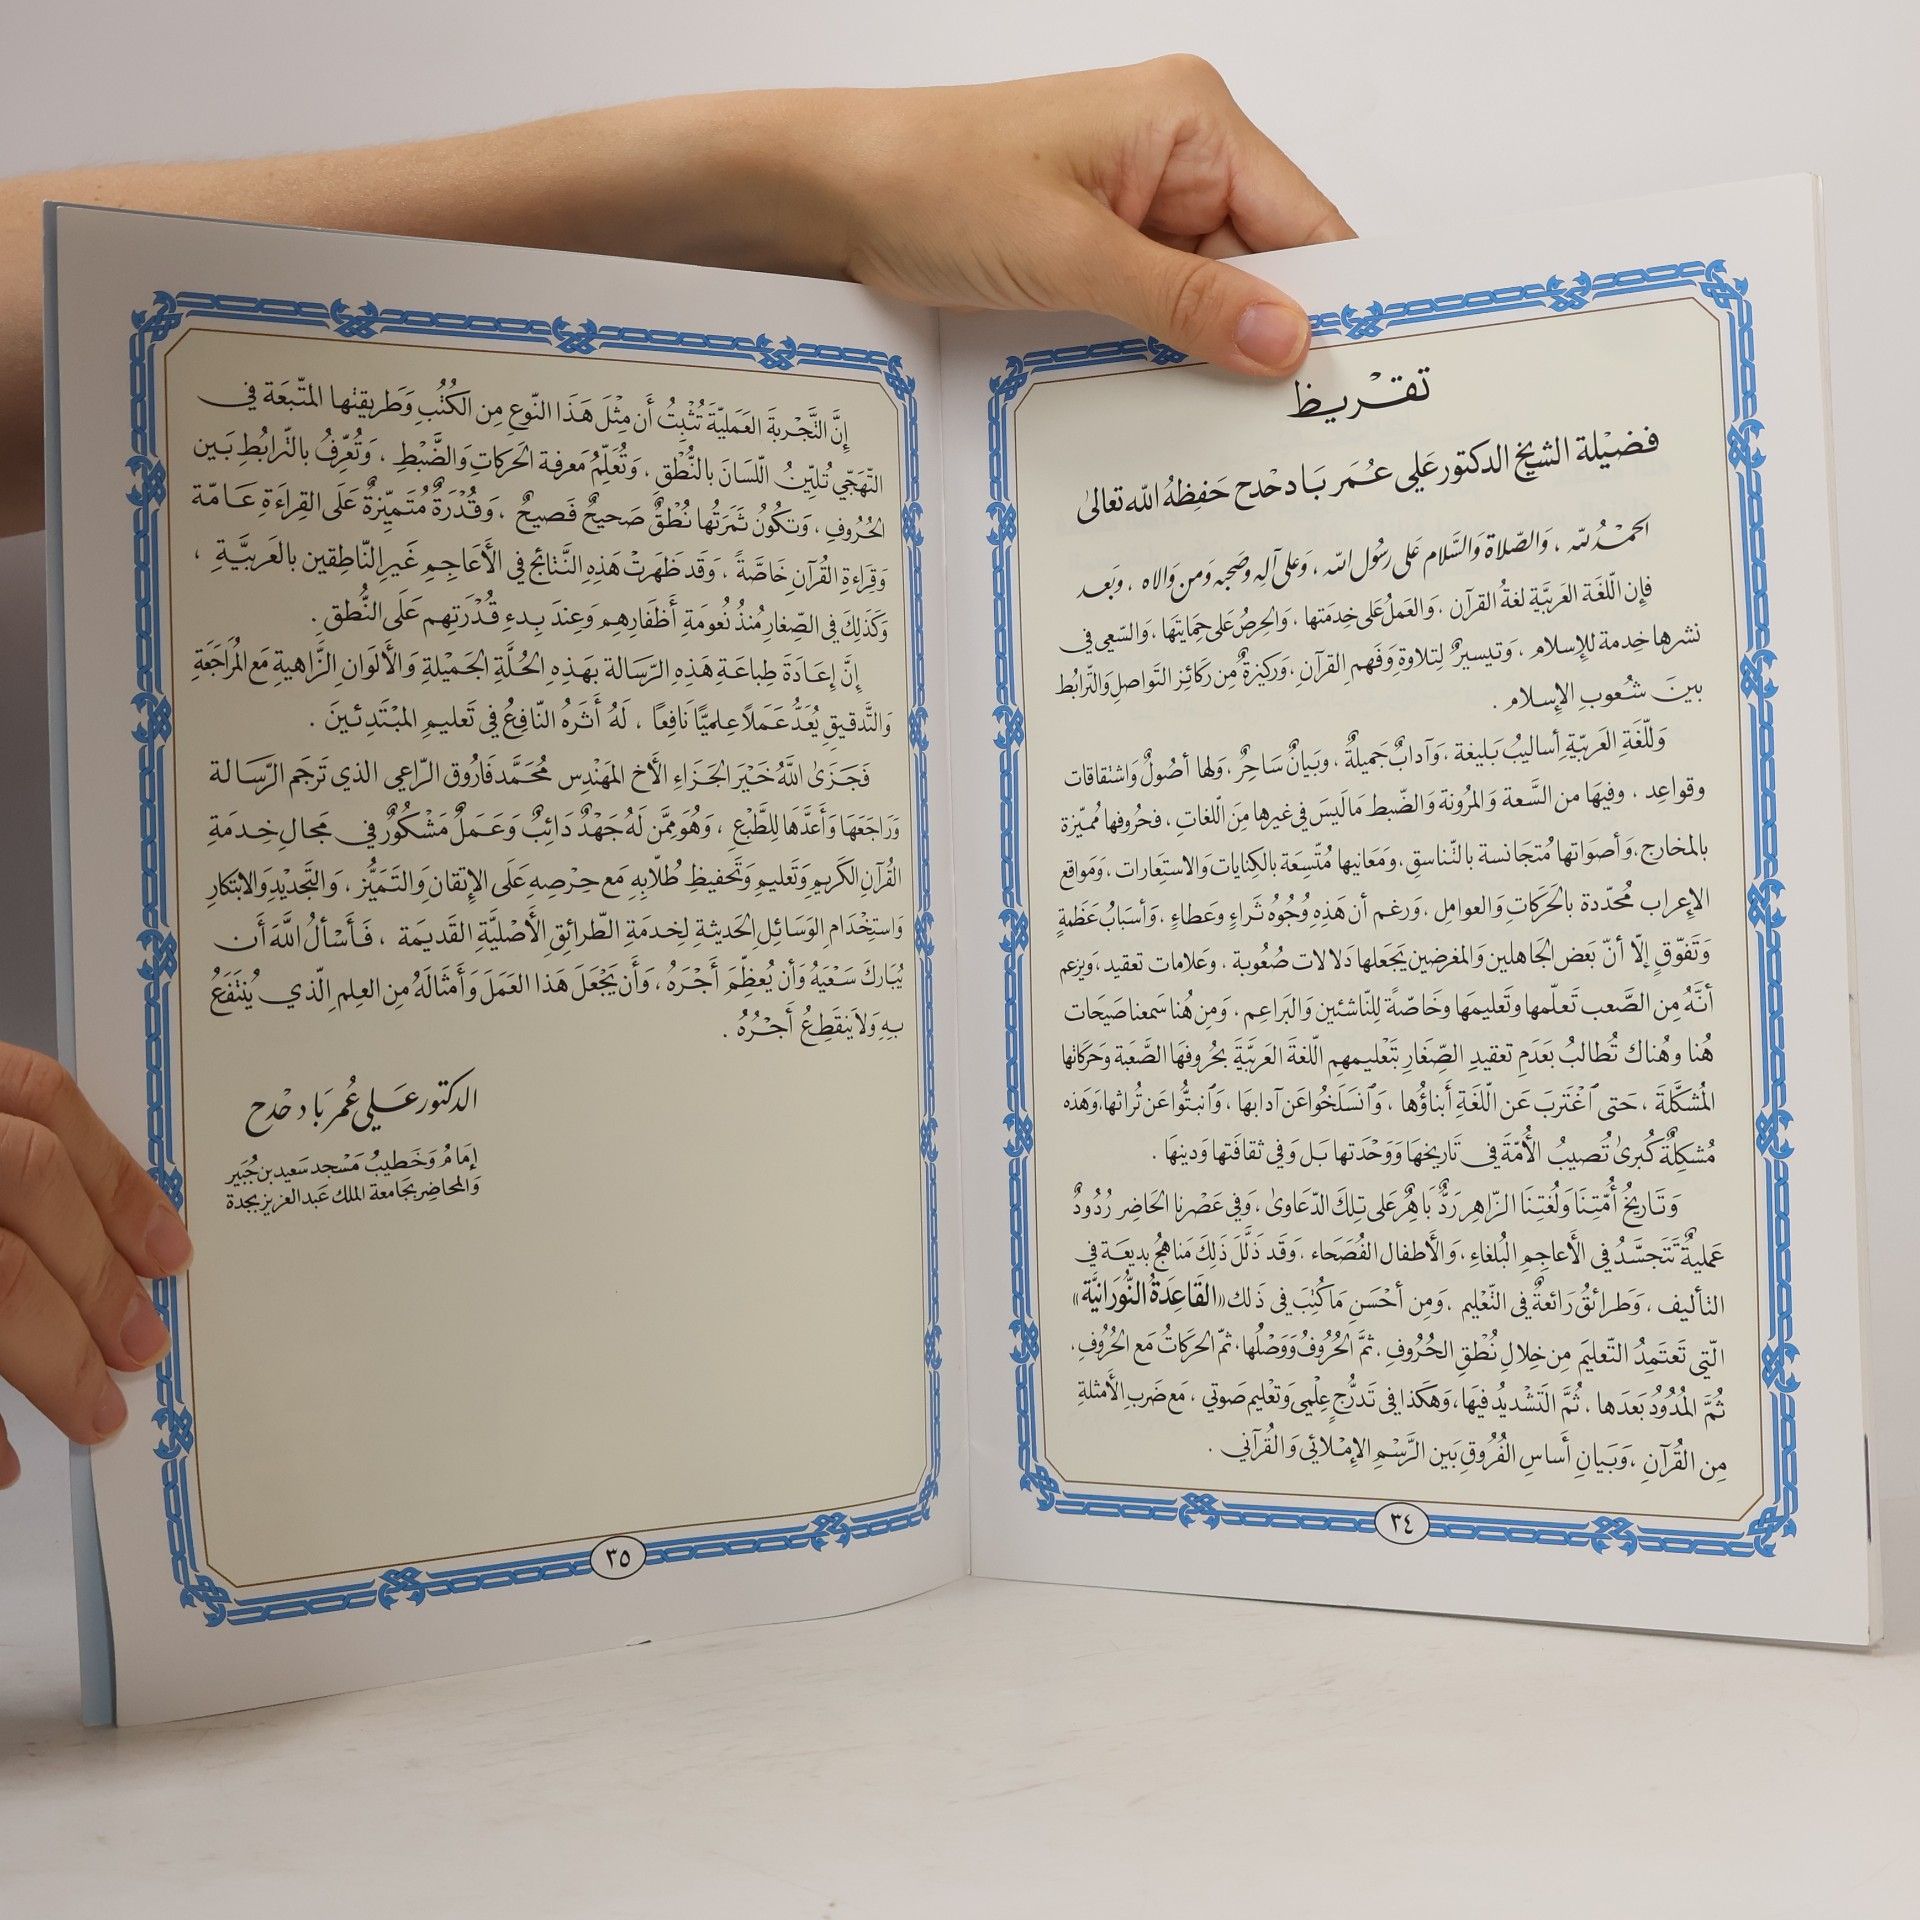 تقريظ
فضيلة الشيخ الدكتور علي عُمَر بَادحْدح حَفِظهُ الله تعالىٰ
الحمْدُ لله ، وَالصّلاة وَالسَّلام عَلى رسُول الله ، وَعلى آلِه وصَحبِه وَمن وَالاه ، وَبَعد
فإن اللّغَة العَربيَّة لغةُ القرآن ، وَالعَملُ عَلى خِدمَتها ، وَالحِرصُ عَلى حِمايَتِهَا ، وَالسّعي في
نشرها خِدمة للإسلام ، وَتيسيرٌ لِتلاوةِ وَفَهمِ القرآنِ ، وَركيزةٌ مِن ركَائز التَواصلِ وَالتّرابُط
بينَ شُعوبِ الإسلام .
وَللّغَةِ العَربيّةِ أساليبُ بَليغة ، وَآدابٌ جَميلةٌ ، وَبيَانٌ سَاحِرٌ ، وَلها أصُولٌ وَاشتقاقات
وقواعِد ، وفيهَا من السَّعة وَالمرُونة وَالضّبط مَا لَيسَ في غيرها مِنَ اللّغاتِ ، فحُروفها مُميّزة
بالمخارج ، وَأصوَاتها مُتجَانسة بالتّناسقِ ، وَمَعانيها مُتّسِعَة بالكِنايات وَالاستِعَارات ، وَمَواقع
الإعراب مُحَدّدة بالحَركَاتِ وَالعوامِل ، وَرغم أن هَذِهِ وُجُوهُ ثراءٍ وَعطاءٍ ، وَأسبَابُ عَظَمةٍ
وَتفَوّقٍ إلاّ أنّ بَعضَ الجَاهلين وَالمغرضين يَجعَلها دَلالات صُعُوبة ، وَعلامات تعقيد ، وَيزعم
أنّهُ مِن الصَّعب تَعلّمها وتَعليمهَا وخَاصّةً لِلنّاشئين وَالبَراعِم ، وَمِن هُنا سَمعنا صَيحَات
هُنا وهُناك تُطالبُ بعَدَمِ تعقيدِ الصِّغَارِ بتَعْليمهِم اللّغةَ العَربيَّة بحُروفهَا الصَّعبَة وَحَركاتها
المُشكَّلَة ، حَتى ٱغْتربَ عَن اللّغَةِ أبناؤُها ، وَٱنسَلَخُوا عَن آدابهَا ، وَٱنبتُّوا عَن تُراثها ، وَهَذه
مُشكِلةٌ كُبرىٰ تُصيبُ الأُمّةَ في تَاريخهَا وَوَحْدَتها بَل وَفي ثقَافَتها وَدينِهَا .
وَتَاريخُ أُمّتِنَا وَلُغتِنَا الزّاهِرِ رَدٌّ بَاهِرٌ عَلى تِلكَ الدَّعَاوىٰ ، وَفي عَصْرنا الحَاضِر رُدُودٌ
عَمليةٌ تَتجَسَّدُ في الأعاجِمِ البُلغاءِ ، وَالأطفال الفُصَحَاء ، وَقَد ذَلّلَ ذَلِكَ مَناهجُ بديعَة في
التأليف ، وَطرائقُ رَائعةٌ في التّعْليم ، وَمِن أحْسَنِ مَا كُتِبَ في ذَلك «القَاعِدَةُ النُّورَانيَّة»
الّتي تَعتَمِدُ التّعليمَ مِن خِلالِ نُطْقِ الحُرُوفِ ، ثمَّ الحُرُوفُ وَوَصْلُها ، ثمّ الحركَاتُ مَع الحُروفِ ،
ثُمَّ المُدُودُ بَعدَها ، ثُمَّ التَشْديدُ فيهَا ، وَهكَذا في تَدَرُّجٍ عِلْمي وَتعْليم صَوتي ، مَع ضَربِ الأمثلةِ
مِن القُرآنِ ، وَبيَانِ أَساسِ الفُرُوقِ بَين الرَّسْمِ الإمْلائي وَالقُرآني .
٣٤
إنَّ التَّجْربةَ العَمَليّةَ تُثْبِتُ أَن مِثْلَ هَذَا النّوعِ مِن الكُتُبِ وَطَريقتها المتّبعَة في
التّهَجّي تُليّنُ اللّسَانَ بالنُّطْقِ ، وَتُعَلِّمُ مَعرفة الحَركاتِ وَالضَّبْطِ ، وَتُعَرِّفُ بالتّرابُطِ بَين
الحُرُوفِ ، وَتكُونُ ثَمرَتُها نُطْقٌ صَحيحٌ فَصيحٌ ، وَقُدْرَةٌ مُتَميِّزةٌ عَلَى القِراءَةِ عَامّة
وَقِراءةِ القُرآنِ خَاصَّةً ، وَقَد ظَهَرتْ هَذِهِ النَّتائج في الأَعَاجِمِ غَيرِ النَّاطِقين بالعَربيَّةِ ،
وَكَذلِكَ في الصّغارِ مُنذُ نُعُومَةِ أَظفَارِهِم وَعِندَ بِدءِ قُدْرَتِهم عَلَى النُّطقِ .
إنَّ إعَادَةَ طِبَاعَةِ هَذِهِ الرّسَالة بهَذِهِ الحُلَّةِ الجَميلةِ وَالأَلوَانِ الزَّاهيةِ مَع المُراجَعَةِ
وَالتَّدقيقِ يُعَدُّ عَمَلاً عِلميًّا نَافِعًا ، لَهُ أَثَرَهُ النّافِعُ في تَعليمِ المبْتَدِئينَ .
فَجَزىٰ اللهُ خَيْرَ الجَزَاءِ الأخ المهَنْدِس مُحَمَّد فَاروق الرّاعي الذي تَرجَم الرّسَالة
وَرَاجَعَهَا وَأَعدَّهَا لِلطَّبْعِ ، وَهُوَ مِمَّن لَهُ جَهْدٌ دَائِبٌ وَعَمَلٌ مَشْكُورٌ في مَجالِ خِدمَةِ
القُرآنِ الكَريم وَتَعليمِ وَتَحفيظِ طُلّابِهِ مَع حِرصِهِ عَلَى الإتقَانِ وَالتَميُّز ، وَالتَّجديدِ وَالابتكارِ
وَاستِخْدَامِ الوَسَائلِ الحَديثةِ لِخدمَةِ الطّرائقِ الأَصْليَّةِ القَديمَة ، فَأَسْألُ اللَّهَ أَن
يُبَارِكَ سَعْيَهُ وَأن يُعظِّمَ أَجْرَهُ ، وَأَن يَجْعَلَ هَذا العَمَلَ وَأمثَالَهُ مِن العِلم الّذي يُنتَفَعُ
بهِ وَلاَ يَنقَطِعُ أَجْرُهُ .
الدكتور عَلي عُمر بَادحْدح
إمَامُ وَخَطيبُ مَسْجد سَعيد بن جُبَير
وَالمحَاضِر بجَامعة الملك عَبد العَزيز بجدة
٣٥